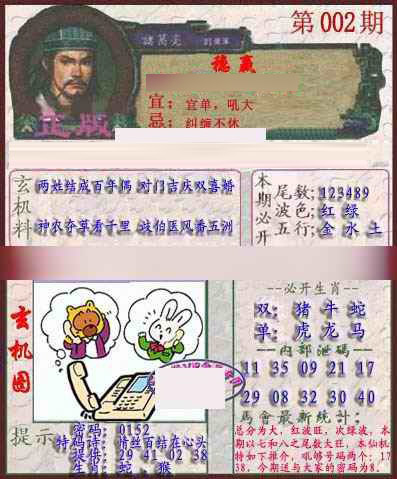 第002期
諸葛亮
穩赢
宜:宜单,吼大
忌:纠缠不休
正版
玄机料
两姓结成百年偶 对门吉庆双喜婚
神农夺草看千里 岐伯医风番五洲
本期必开
尾数:123489
波色:红 绿
五行:金 水 土
玄机图
--必开生肖--
双:猪 牛 蛇
单:虎 龙 马
--内部泄碼--
11 35 09 21 17
29 08 32 30 40
馬會最新统计:
总分为大,红波旺,次绿波,本
期以七和八之尾数大旺,本仙机
特如下推介,吼够号码两个:17
38,今期送与大家的密码为8.
提示
密码:0152
特码诗:情丝百结在心头
提供:29 41 02 38
生肖:蛇,猴